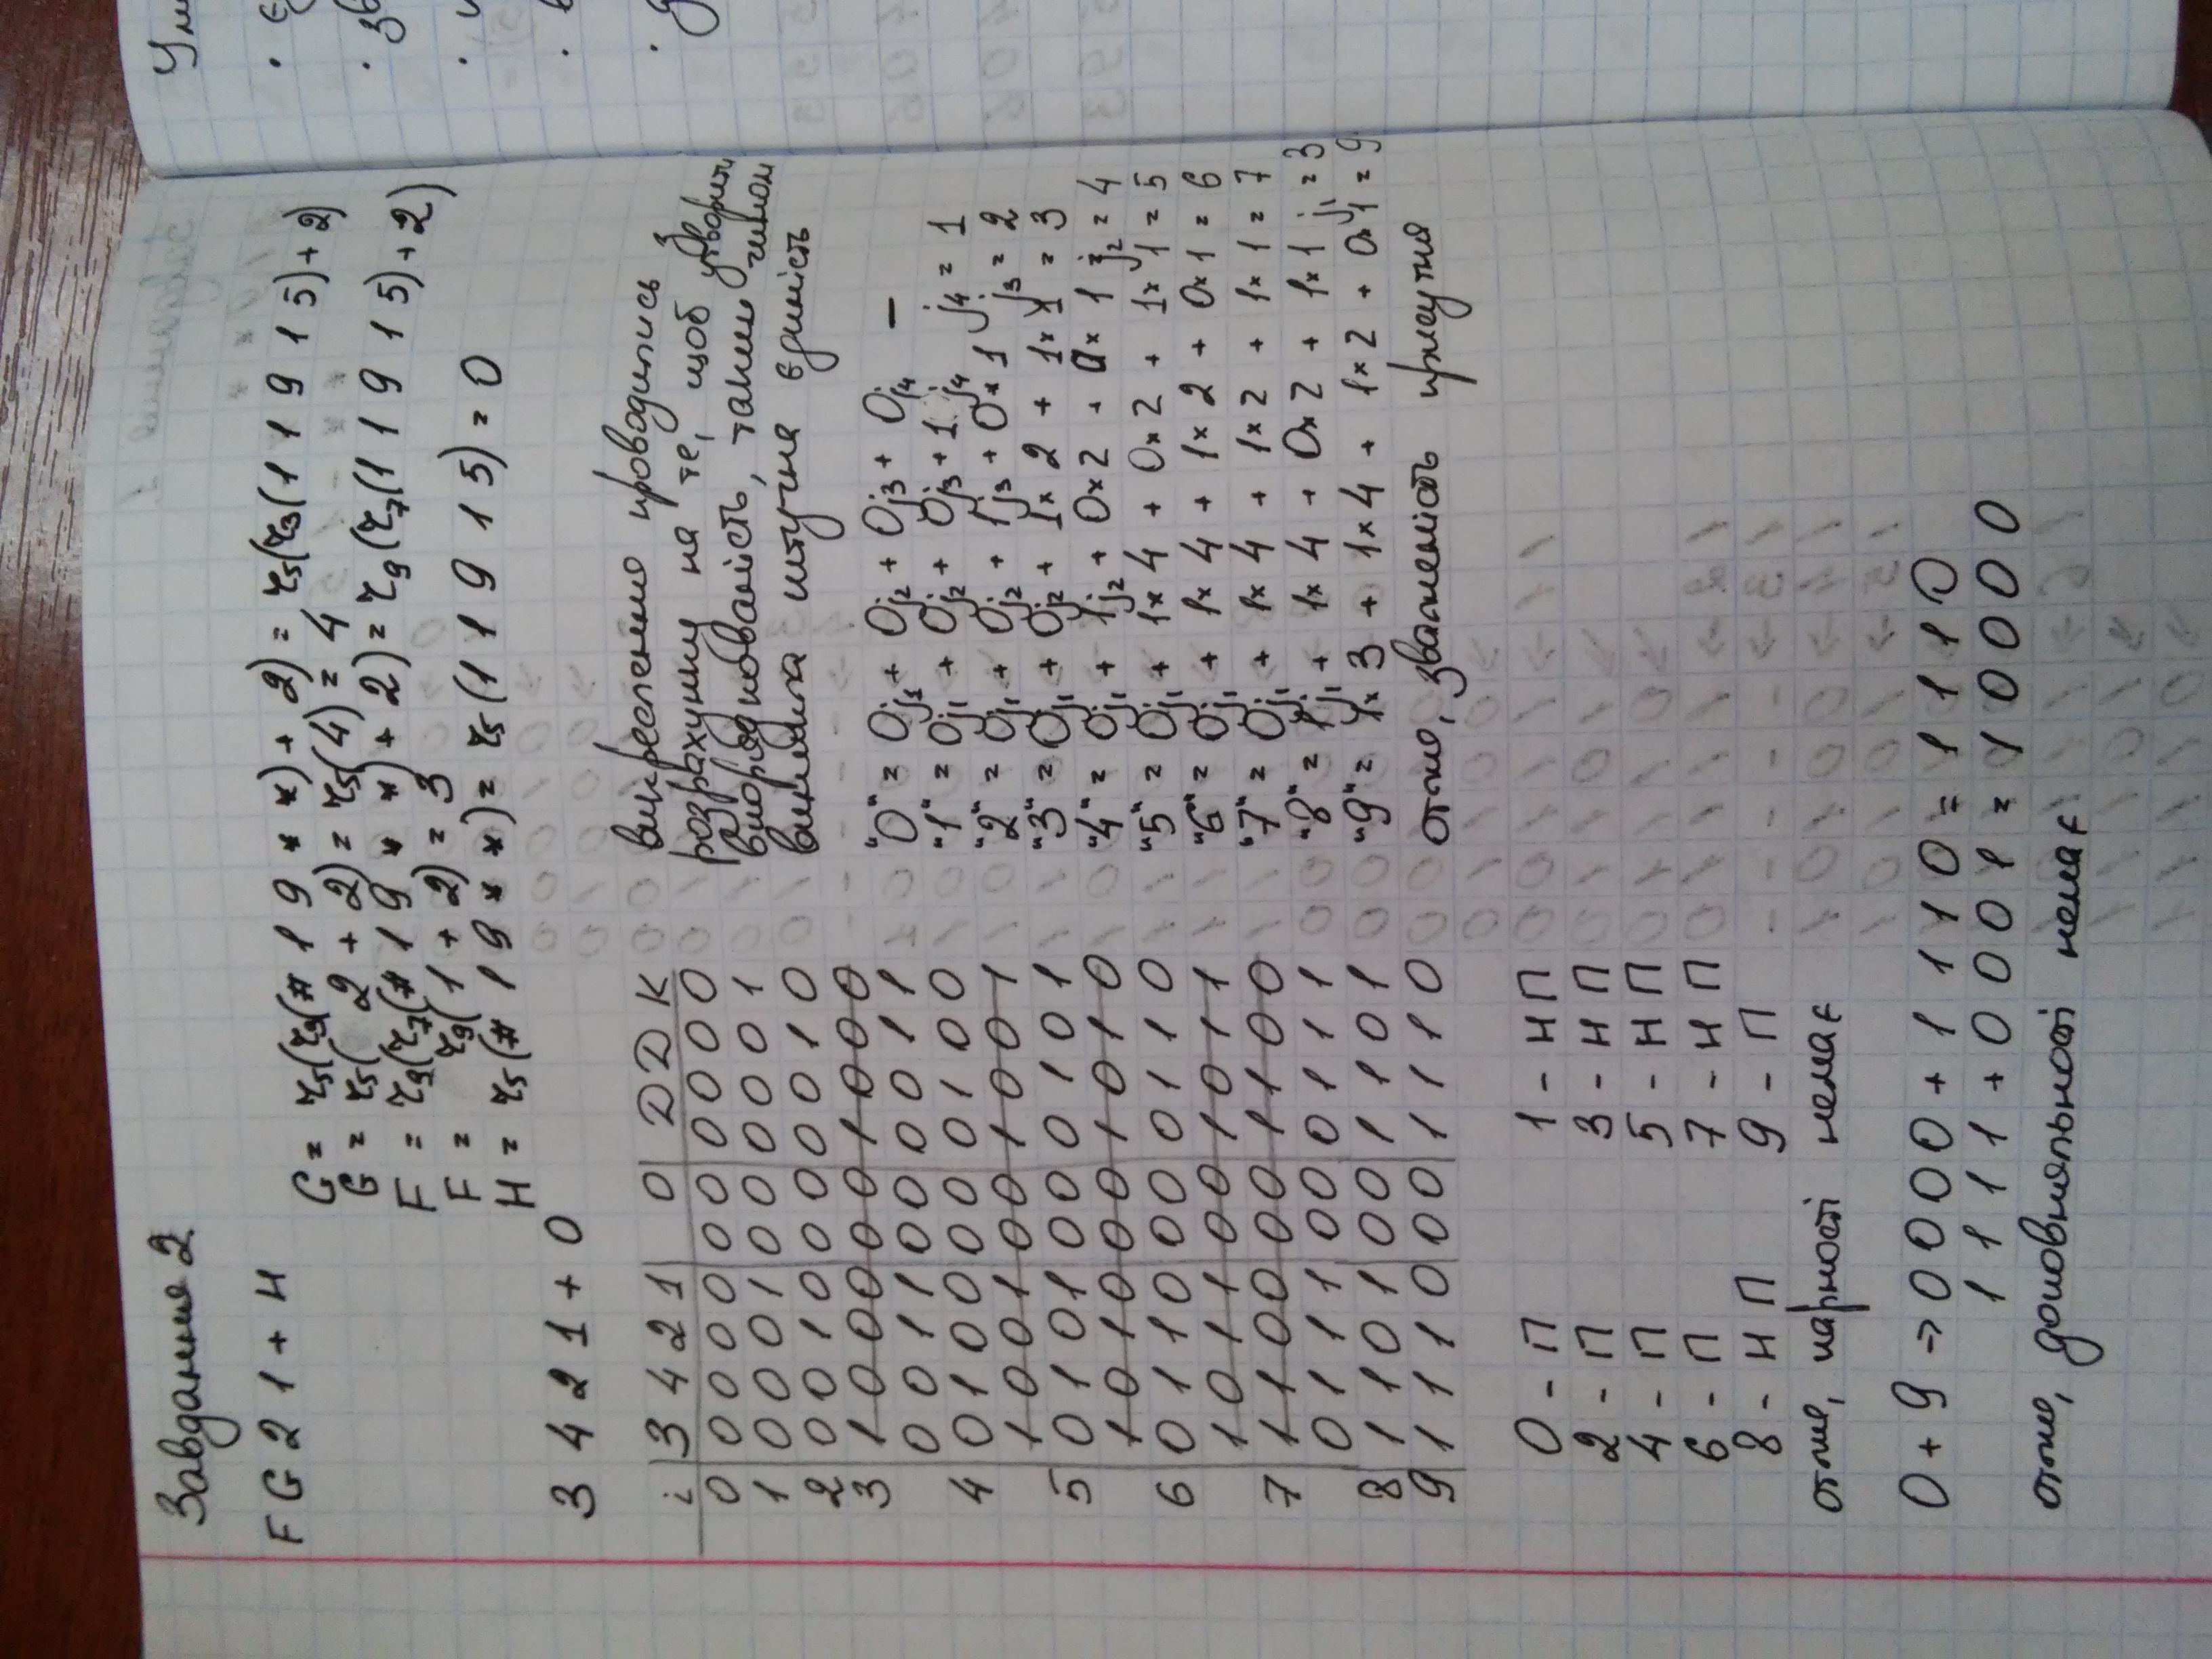 Завдання 2
F G 2 1 + H
G = r₅(r₃(# 1 9 * *) + 2) = r₅(r₃(1 1 9 1 5) + 2)
G = r₅( 2 + 2) = r₅(4) = 4
F = r₉(r₇(# 1 9 * *) + 2) = r₉(r₇(1 1 9 1 5) + 2)
F = r₉(1 + 2) = 3
H = r₅(# 1 9 * *) = r₅(1 1 9 1 5) = 0
3 4 2 1 + 0
i 3 4 2 1 0 Д Д К
0 0 0 0 0 0 0 0 0 0 0
1 0 0 0 1 0 0 0 0 0 1
2 0 0 1 0 0 0 0 0 1 0
3 1 0 0 0 0 0 1 0 0 0
0 0 1 1 0 0 0 0 1 1
4 0 1 0 0 0 0 0 1 0 0
1 0 0 1 0 0 1 0 0 1
5 0 1 0 1 0 0 0 1 0 1
1 0 1 0 0 0 1 0 1 0
6 0 1 1 0 0 0 0 1 1 0
1 0 1 1 0 0 1 0 1 1
7 1 1 0 0 0 0 1 1 0 0
0 1 1 1 0 0 0 1 1 1
8 1 1 0 1 0 0 1 1 0 1
9 1 1 1 0 0 0 1 1 1 0
викреслення проводились з
розрахунку на те, щоб утворити
впорядкованість, таким чином
виникла штучна єдиність
"0" = 0j₁ + 0j₂ + 0j₃ + 0j₄ –
"1" = 0j₁ + 0j₂ + 0j₃ + 1·j₄ j₄ = 1
"2" = 0j₁ + 0j₂ + 1j₃ + 0×1 j₃ = 2
"3" = 0j₁ + 0j₂ + 1×2 + 1×1 = 3
"4" = 0j₁ + 1j₂ + 0×2 + 0×1 j₂ = 4
"5" = 0j₁ + 1×4 + 0×2 + 1×1 = 5
"6" = 0j₁ + 1×4 + 1×2 + 0×1 = 6
"7" = 0j₁ + 1×4 + 1×2 + 1×1 = 7
"8" = 1j₁ + 1×4 + 0×2 + 1×1 j₁ = 3
"9" = 1×3 + 1×4 + 1×2 + 0×1 = 9
отже, зваженість присутня
0 - П 1 - НП
2 - П 3 - НП
4 - П 5 - НП
6 - П 7 - НП
8 - НП 9 - П
отже, парності немає
0 + 9 → 0 0 0 0 + 1 1 1 0 = 1 1 1 0
1 1 1 1 + 0 0 0 1 = 1 0 0 0 0
отже, доповняльності немає